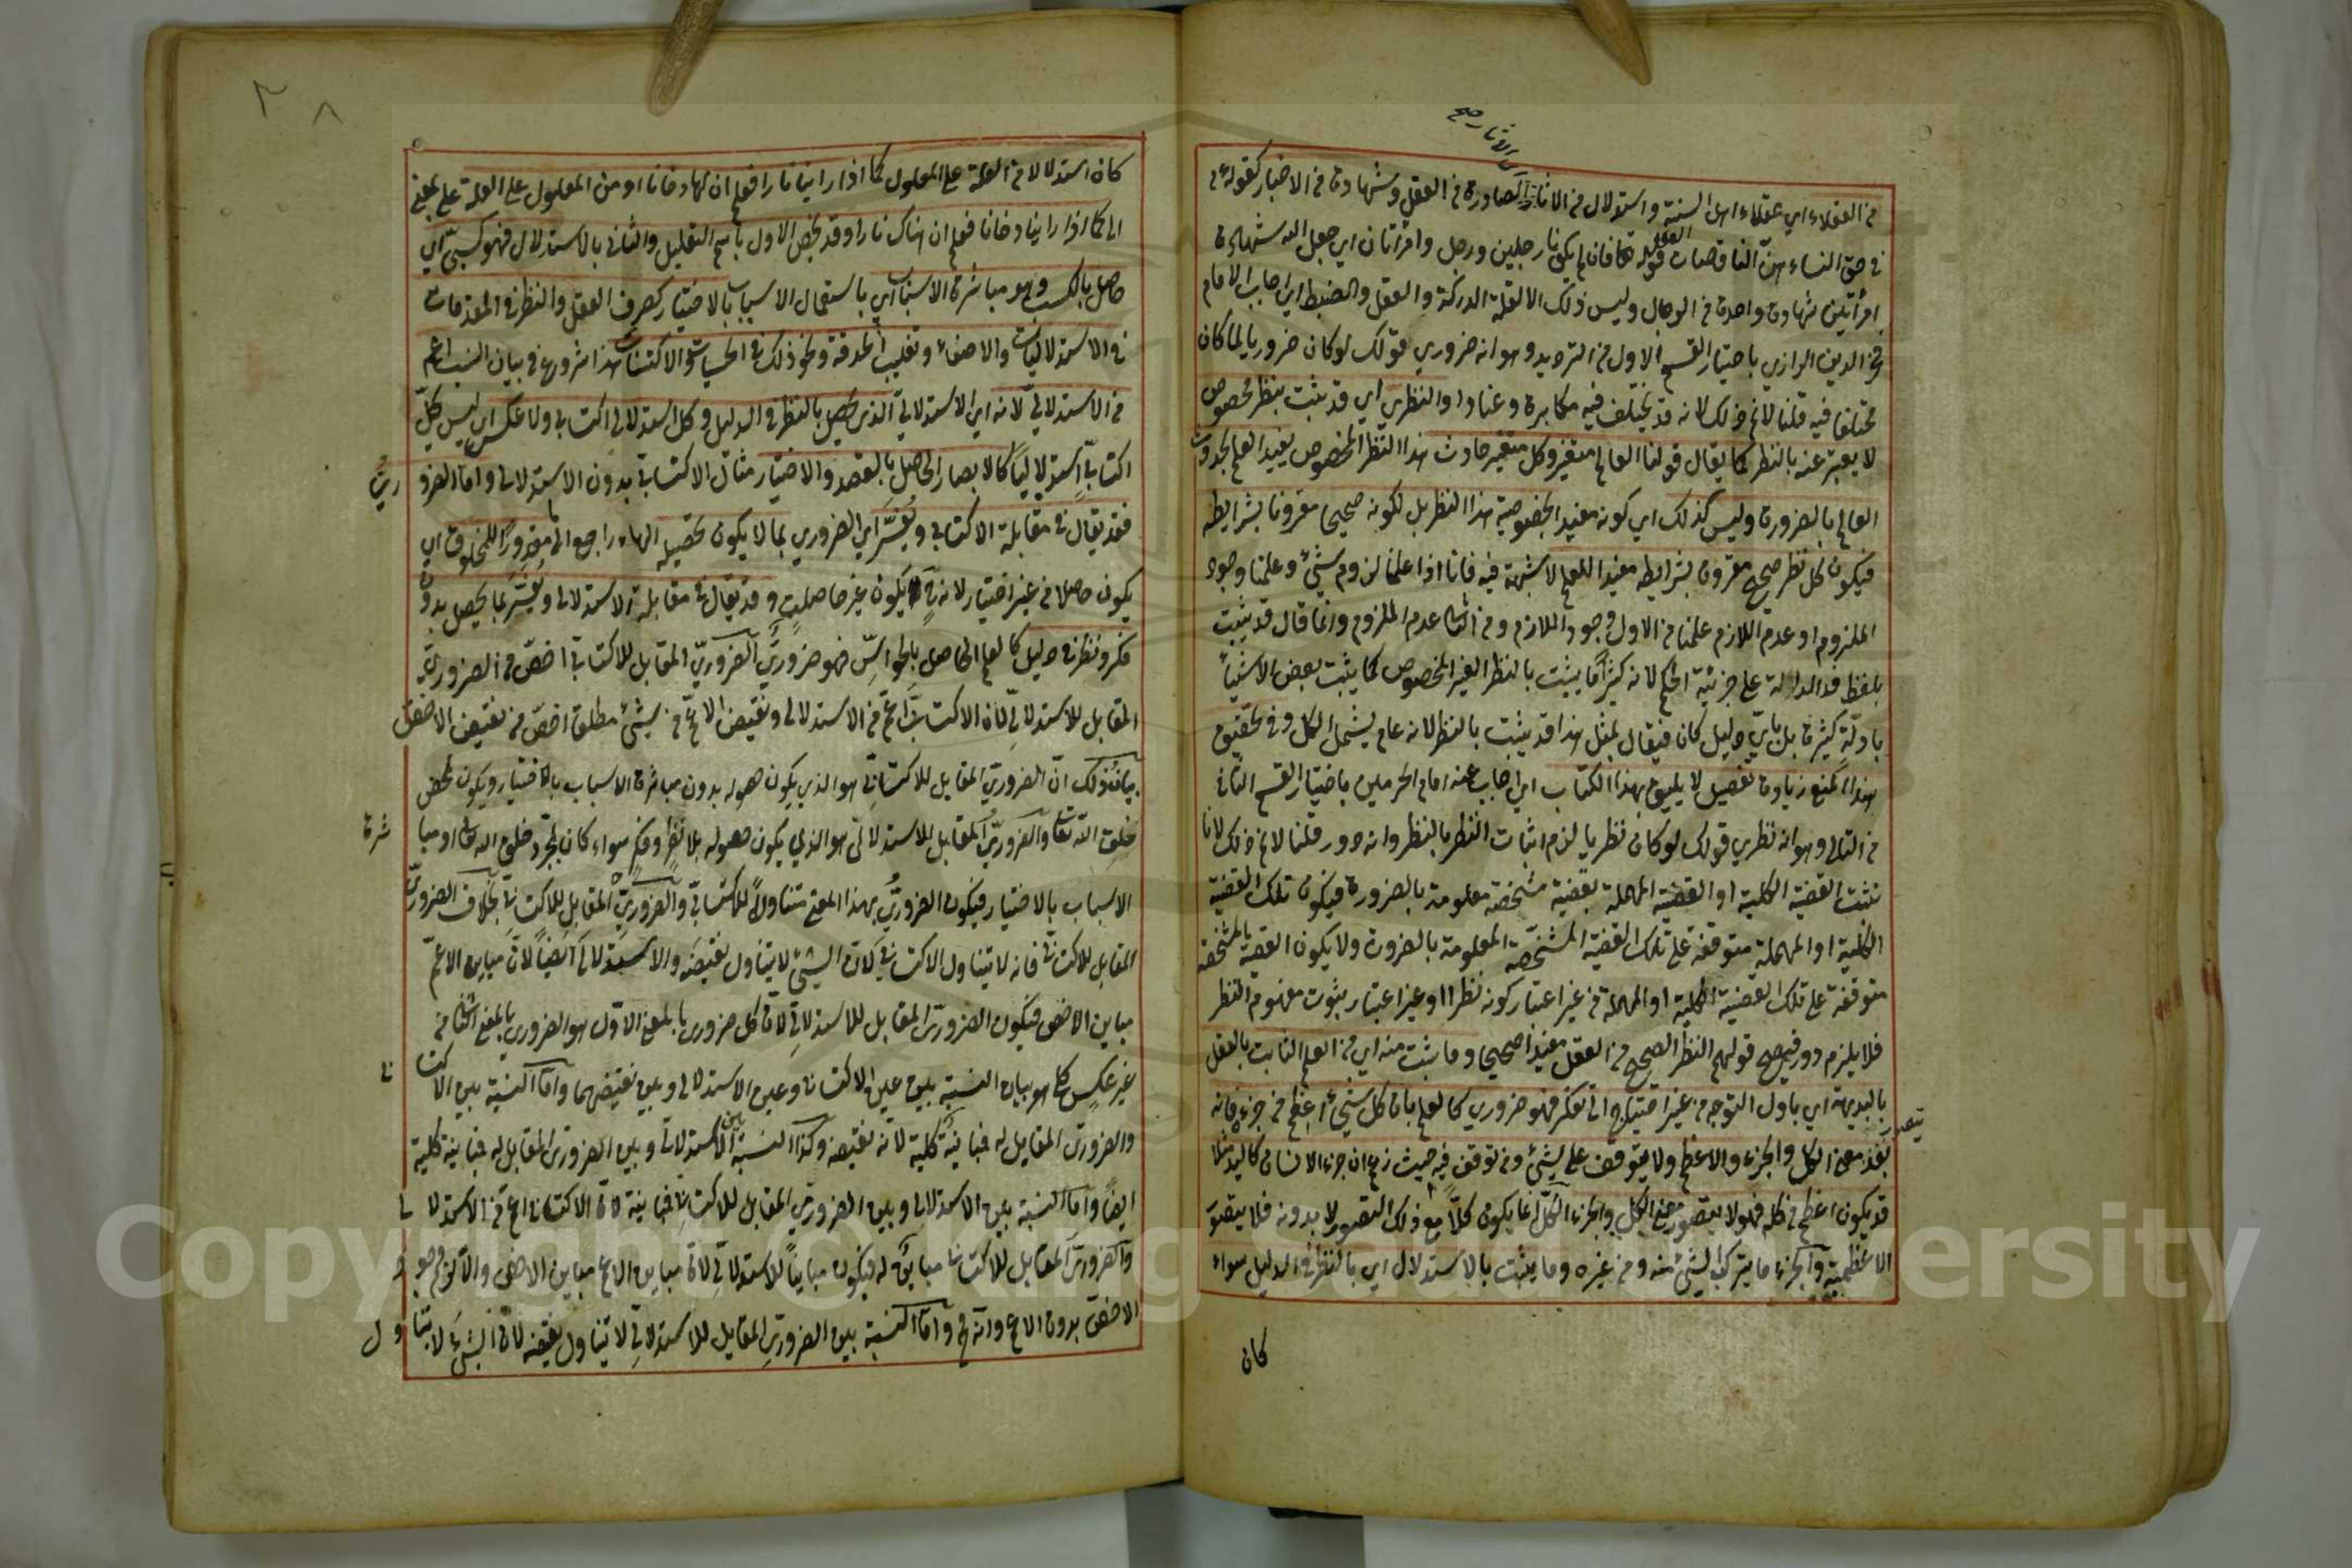 من العقلاء اي عقلاء اهل السنة واستدلال من الآثار الصادرة من العقل وشهادة من الاخبار كقوله ع م
في حق النساء هن الناقصات العقل قوله تعا فان لم يكونا رجلين فرجل وامرأتان اي جعل الله شهادة
امرأتين شهادة واحدة من الرجال وليس ذلك الا لقلة الدركة والعقل والضبط اي اجاب الامام
فخر الدين الرازي باختيار القسم الاول من الترديد وهو انه ضروري قولك لو كان ضروريا لما كان
مختلفا فيه قلنا لا نم ذلك لانه قد يختلف فيه مكابرة وعنادا والنظري اي قد يثبت بنظر مخصوص
لا يعبر عنه بالنظر كما يقال قولنا العالم متغير وكل متغير حادث هذا النظر المخصوص يفيد العلم بحدوث
العالم بالضرورة وليس كذلك اي كونه مفيدا لخصوصية هذا النظر بل لكونه صحيحا مقرونا بشرايطه
فيكون كل نظر صحيح مقرون بشرايطه مفيدا للعلم لا شبهة فيه فانا اذا علمنا لزوم شيء وعلمنا وجود
الملزوم او عدم اللازم علمنا من الاول وجود اللازم ومن الثاني عدم الملزوم وانما قال قد يثبت
بلفظ قد الدالة على جزئية الحكم لانه كثيرا ما يثبت بالنظر الغير المخصوص كما يثبت بعض الاشياء
بادلة كثيرة بل باي دليل كان فيقال بمثل هذا قد يثبت بالنظر لانه عام يشمل الكل وفي تحقيق
هذا المنع زيادة تفصيل لا يليق بهذا الكتاب اي اجاب عنه امام الحرمين باختيار القسم الثاني
من التالي وهو انه نظري قولك لو كان نظريا لزم اثبات النظر بالنظر وانه دور قلنا لا نم ذلك لانا
نثبت القضية الكلية او القضية المهملة بقضية مشخصة معلومة بالضرورة فيكون تلك القضية
الكلية او المهملة متوقفة على تلك القضية المشخصة المعلومة بالضرورة ولا يكون القضية المشخصة
متوقفة على تلك القضية الكلية او المهملة من غير اعتبار كونه نظرا او غير اعتبار بثبوت مفهوم النظر
فلا يلزم دور فيصح قولهم النظر الصحيح من العقل مفيدا صحيحا وما يثبت منه اي من العلم الثابت بالعقل
بالبديهة اي باول التوجه من غير احتياج الى تفكر فهو ضروري كالعلم بان كل شيء اعظم من جزءه فانه
بعد تصور معنى الكل والجزء والاعظم ولا يتوقف على شيء ومن توقف فيه حيث زعم ان جزء الانسان كاليد مثلا
قد يكون اعظم من كله فهو لا يتصور معنى الكل والجزء الكل انما يكون كلا مع ذلك التصور لا بدونه فلا يتصور
الاعظمية والجزء ما يتركب الشيء منه ومن غيره وما يثبت بالاستدلال اي بالنظر في الدليل سواء
كان
كان استدلالا من العلة على المعلول كما اذا رأينا نارا فعلم ان لها دخانا او من المعلول على العلة
كما اذا رأينا دخانا فعلم ان هناك نارا وقد يخص الاول باسم التعليل والثاني بالاستدلال فهو كسبي اي
حاصل بالكسب وهو مباشرة الاسباب اي باستعمال الاسباب بالاختيار كصرف العقل والنظر في المقدمات
في الاستدلاليات والاصغاء وتقليب الحدقة ونحو ذلك في الحسيات والاكتساب هذا شروع في بيان النسب اعم
من الاستدلالي لانه اي الاستدلالي الذي يحصل بالنظر في الدليل وكل استدلالي اكتسابي ولا عكس اي ليس كل
اكتسابي استدلاليا كالابصار الحاصل بالقصد والاختيار مثال الاكتسابي بدون الاستدلالي واما الضروري
فقد يقال في مقابلة الاكتسابي ويفسر اي الضروري بما لا يكون تحصيله الهاء راجع الى ما مقدورا للمخلوق اي
يكون حاصلا من غير اختيار وقد يقال في مقابلة الاستدلالي ويفسر بما يحصل بدون
فكر ونظر في دليل كالعلم الحاصل بالحواس فهو ضروري الضروري المقابل للاكتسابي اخص من الضروري
المقابل للاستدلالي لان الاكتسابي اعم من الاستدلالي ونقيض الاعم من شيء مطلقا اخص من نقيض الاخص
بيان ذلك ان الضروري المقابل للاكتسابي هو الذي يكون حصوله بدون مباشرة الاسباب بالاختيار ويكون بمحض
خلق الله تعا والضروري المقابل للاستدلالي هو الذي يكون حصوله بلا نظر وفكر سواء كان بمجرد خلق الله تعا او مباشرة
الاسباب بالاختيار فيكون الضروري بهذا المعنى متناولا للاكتسابي والضروري المقابل للاكتسابي بخلاف الضروري
المقابل للاكتسابي فانه لا يتناول الاكتسابي لان الشيء لا يتناول نقيضه والاستدلالي ايضا لان مباين الاعم
مباين الاخص فيكون الضروري المقابل للاستدلالي لان كل ضروري بالمعنى الاول هو الضروري بالمعنى الثاني من
غير عكس كما هو بيان النسبة بين عين الاكتسابي وعين الاستدلالي وبين نقيضهما واما النسبة بين الاكتسابي
والضروري المقابل له فمباينة كلية لانه نقيضه وكذا النسبة بين الاستدلالي وبين الضروري المقابل له مباينة كلية
ايضا واما النسبة بين الاستدلالي وبين الضروري المقابل للاكتسابي فمباينة لان الاكتسابي اعم من الاستدلالي
والضروري المقابل للاكتسابي مباين له فيكون مباينا للاستدلالي لان مباين الاعم مباين الاخص والا لزم وجود
الاخص بدون الاعم وانه مح واما النسبة بين الضروري المقابل للاستدلالي لا يتناول نقيضه لان الشيء لا يتناول
Copyright © King Saud University